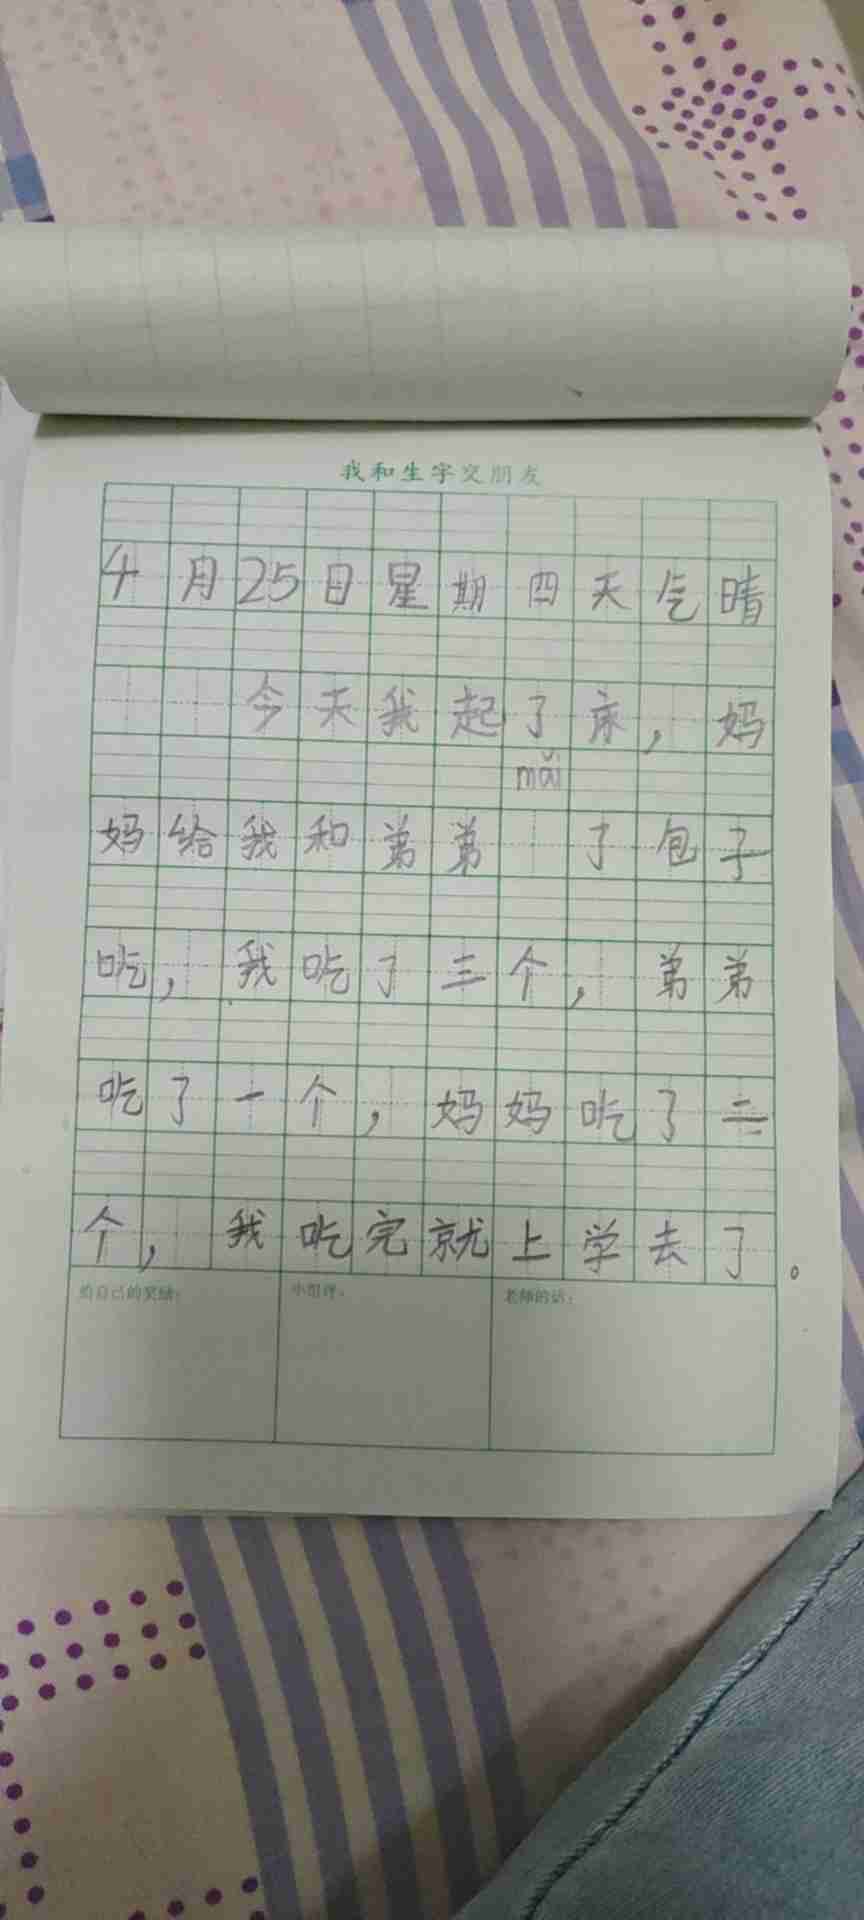 我和生字交朋友
4月25日星期四天气晴
今天我起了床，妈
mǎi
妈给我和弟弟 了包子
吃，我吃了三个，弟弟
吃了一个，妈妈吃了二
个，我吃完就上学去了。
给自己的奖励： 小组评： 老师的话：